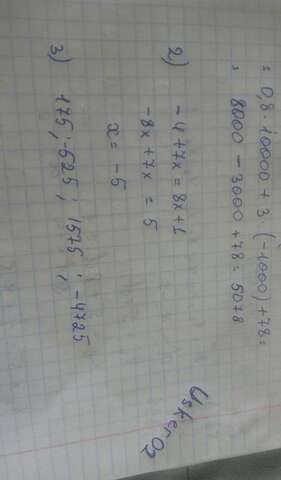 = 0,8 · 10000 + 3 · (-1000) + 78 =
= 8000 - 3000 + 78 = 5078
2) -4 + 7x = 8x + 1
-8x + 7x = 5
x = -5
3) 175; -525; 1575; -4725
UskerO2